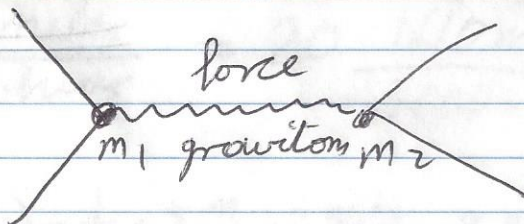 force
m1 gravitons m2